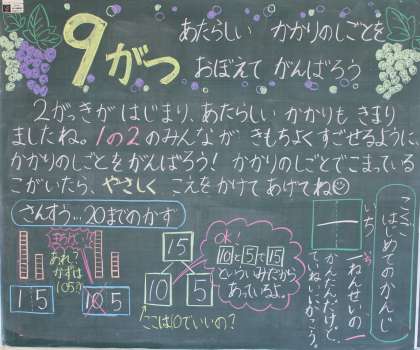 9がつ
あたらしい かかりのしごとを
おぼえて がんばろう
2がっきが はじまり、あたらしい かかりも きまり
ましたね。1の2のみんなが きもちよくすごせるように、
かかりのしごとをがんばろう! かかりのしごとでこまっている
こがいたら、やさしく こえをかけてあげてね
さんすう…20までのかず
あれ?
かずは
105?
15
105
15
10
5
ここは10でいいの?
OK!
10と5で15
といういみだから
あっているよ。
こくご
はじめてのかんじ
一
いち
一ねんせいの一
かんたんだけど、
ていねいにかこう。